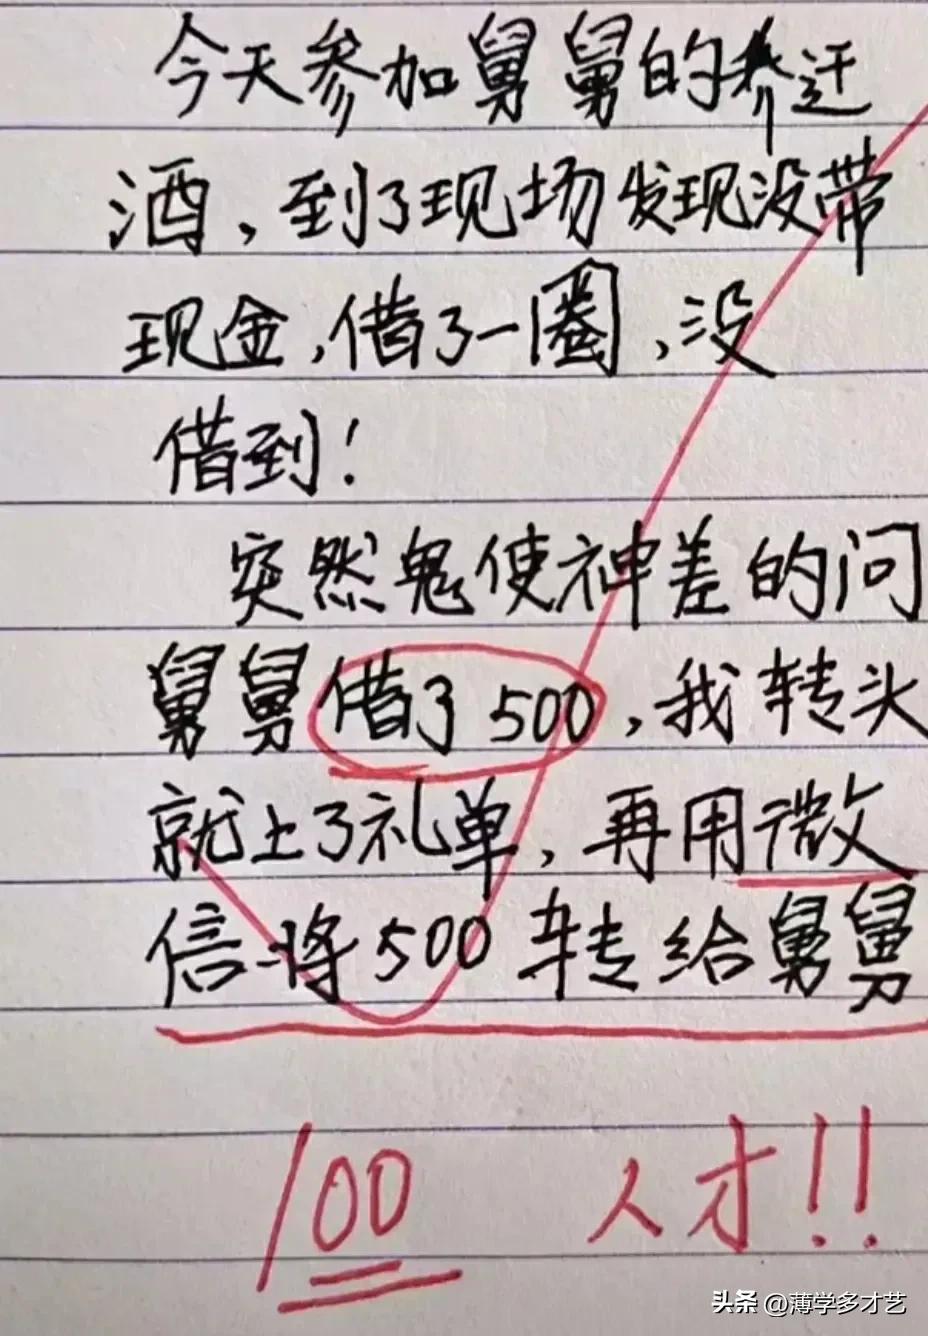 今天参加舅舅的乔迁
酒，到了现场发现没带
现金，借了一圈，没
借到！
突然鬼使神差的问
舅舅借了500，我转头
就上了礼单，再用微
信将500转给舅舅
100 人才!!
头条 @薄学多才艺